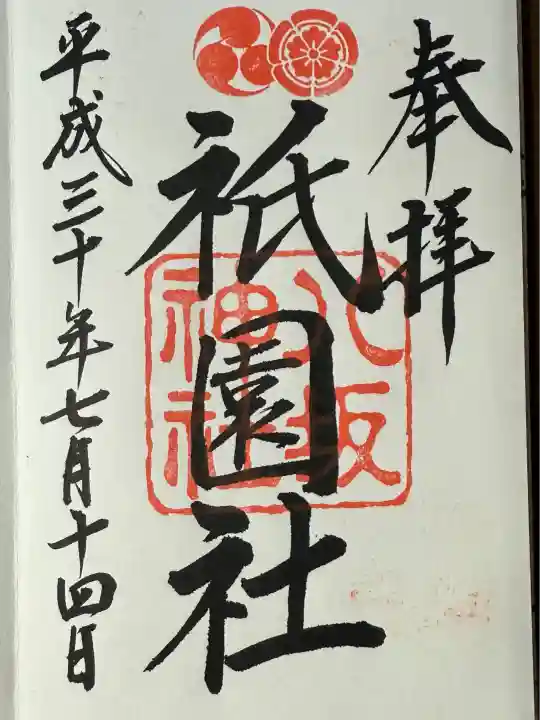 奉拝
祇園社
八坂
神社
平成三十年七月十四日